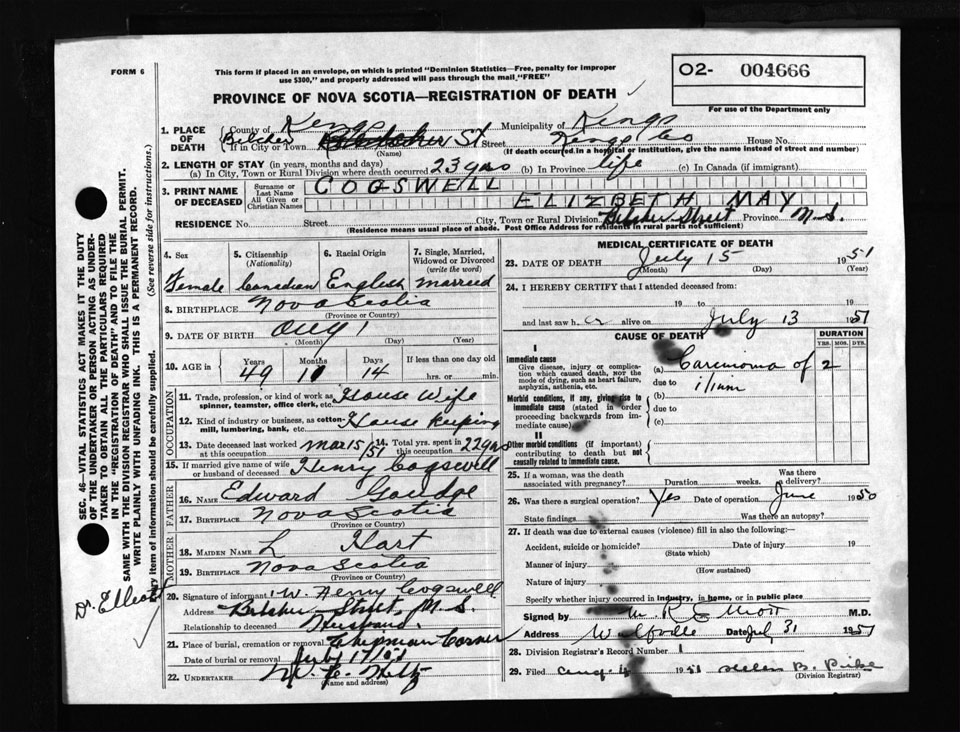 FORM 6
This form if placed in an envelope, on which is printed "Dominion Statistics—Free, penalty for improper
use $300," and properly addressed will pass through the mail, "FREE"
O2- 004666
For use of the Department only
PROVINCE OF NOVA SCOTIA—REGISTRATION OF DEATH
SEC. 46—VITAL STATISTICS ACT MAKES IT THE DUTY
OF THE UNDERTAKER OR PERSON ACTING AS UNDER-
TAKER TO OBTAIN ALL THE PARTICULARS REQUIRED
IN THE "REGISTRATION OF DEATH" AND TO FILE THE
SAME WITH THE DIVISION REGISTRAR WHO SHALL ISSUE THE BURIAL PERMIT.
WRITE PLAINLY WITH UNFADING INK. THIS IS A PERMANENT RECORD.
Every item of information should be carefully supplied. (See reverse side for instructions.)
Dr. Elliott
1. PLACE OF DEATH County of Kings Municipality of Kings
If in City or Town Belcher St Street Kings Co House No.
(Name) (If death occurred in a hospital or institution, give the name instead of street and number)
2. LENGTH OF STAY (in years, months and days)
(a) In City, Town or Rural Division where death occurred 23 yrs (b) In Province life (c) In Canada (if immigrant)
3. PRINT NAME OF DECEASED Surname or Last Name COGSWELL
All Given or Christian Names ELIZBETH MAY
RESIDENCE No. Street City, Town or Rural Division Belcher Street Province N.S.
(Residence means usual place of abode. Post Office Address for residents in rural parts not sufficient)
4. Sex 5. Citizenship (Nationality) 6. Racial Origin 7. Single, Married, Widowed or Divorced (write the word)
Female Canadian English Married
8. BIRTHPLACE Nova Scotia
(Province or Country)
9. DATE OF BIRTH Aug 1
(Month) (Day) (Year)
10. AGE in Years Months Days If less than one day old
49 11 14 hrs. or min.
OCCUPATION
11. Trade, profession, or kind of work as spinner, teamster, office clerk, etc. House Wife
12. Kind of industry or business, as cotton-mill, lumbering, bank, etc. House Keeping
13. Date deceased last worked at this occupation Mar 15/51 14. Total yrs. spent in this occupation 22 yrs
15. If married give name of wife or husband of deceased Henry Cogswell
FATHER
16. NAME Edward Goudge
17. BIRTHPLACE Nova Scotia
(Province or Country)
MOTHER
18. MAIDEN NAME L Hart
19. BIRTHPLACE Nova Scotia
(Province or Country)
20. Signature of informant W. Henry Cogswell
Address Belcher Street, N.S.
Relationship to deceased Husband.
21. Place of burial, cremation or removal Chipman Corner
Date of burial or removal July 17/51
22. UNDERTAKER
(Name and address)
MEDICAL CERTIFICATE OF DEATH
23. DATE OF DEATH July 15 1951
(Month) (Day) (Year)
24. I HEREBY CERTIFY that I attended deceased from:
19 to 19
and last saw her alive on July 13 1951
CAUSE OF DEATH DURATION
YRS. MOS. DYS.
I
Immediate cause
Give disease, injury or complication which caused death, not the mode of dying, such as heart failure, asphyxia, asthenia, etc.
(a) Carcinoma of 2
due to ilium
Morbid conditions, if any, giving rise to immediate cause (stated in order proceeding backwards from immediate cause)
(b)
due to
(c)
II
Other morbid conditions (if important) contributing to death but not causally related to immediate cause.
25. If a woman, was the death associated with pregnancy? Duration weeks. Was there a delivery?
26. Was there a surgical operation? Yes Date of operation June 1950
State findings Was there an autopsy?
27. If death was due to external causes (violence) fill in also the following:—
Accident, suicide or homicide? Date of injury 19
(State which)
Manner of injury
(How sustained)
Nature of injury
Specify whether injury occurred in industry, in home, or in public place
Signed by M. R. Elliott M.D.
Address Wolfville Date July 31 1951
28. Division Registrar's Record Number 1
29. Filed Aug 1951 Helen B. Pike
(Division Registrar)